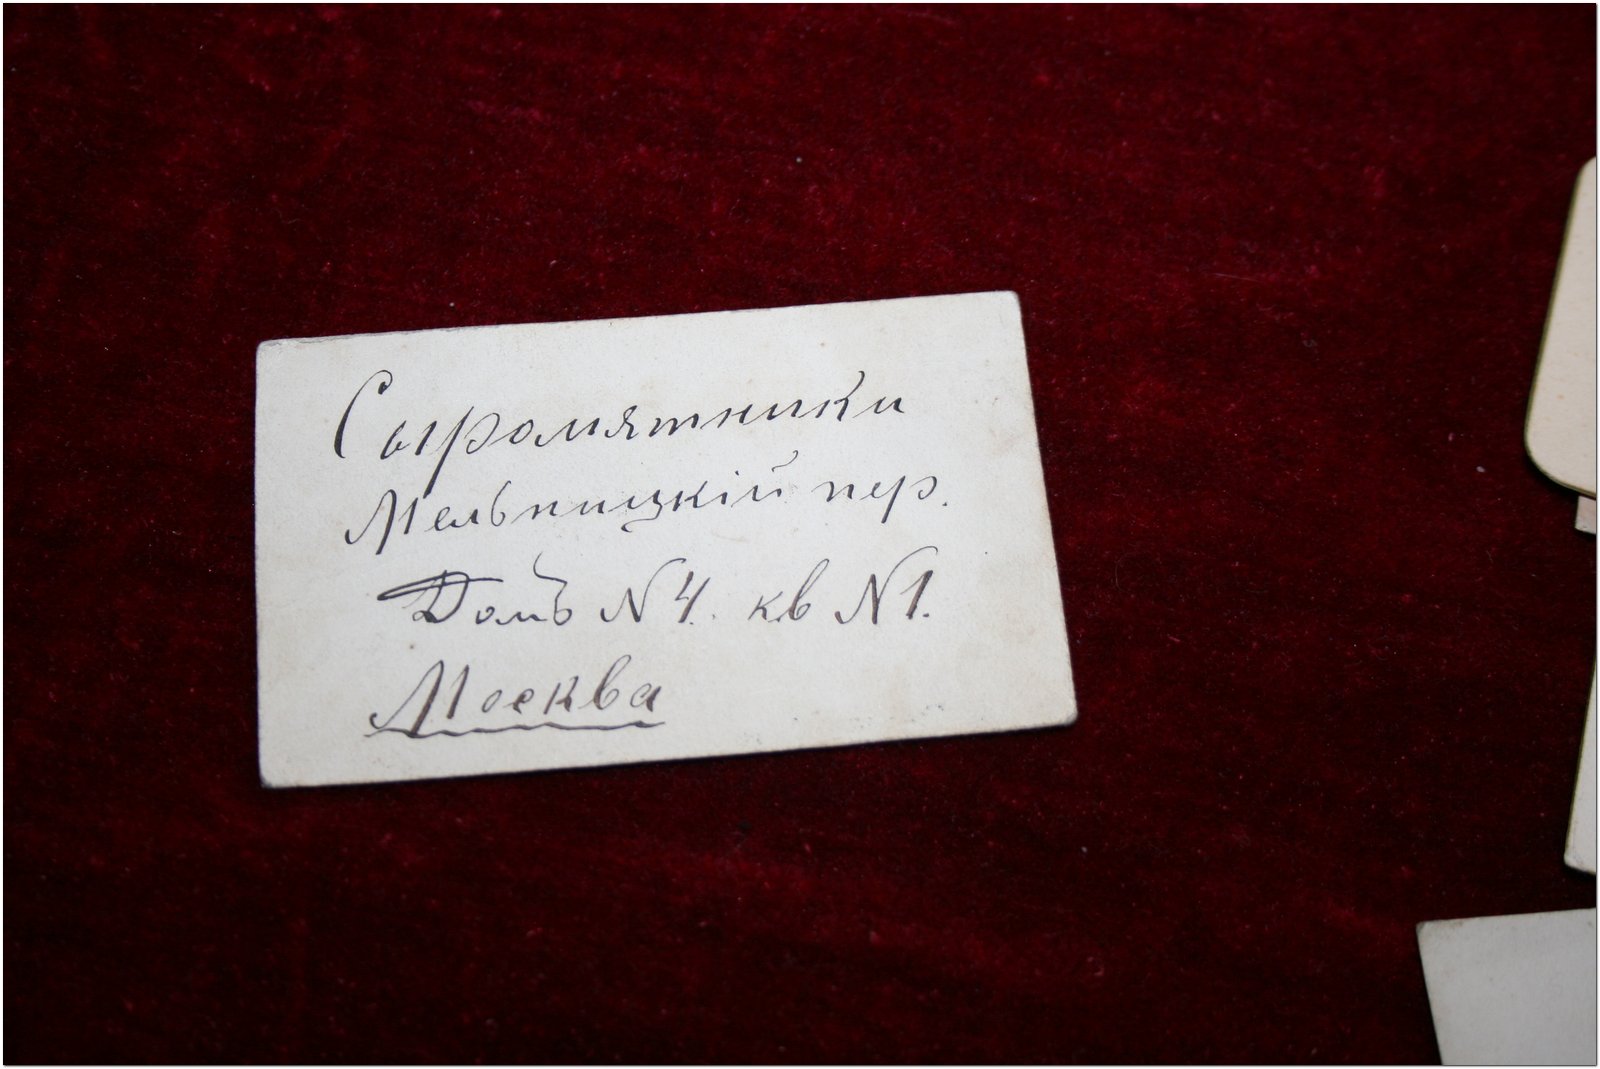 Сыромятники
Мельницкій пер.
Домъ N 4. кв N 1.
Москва